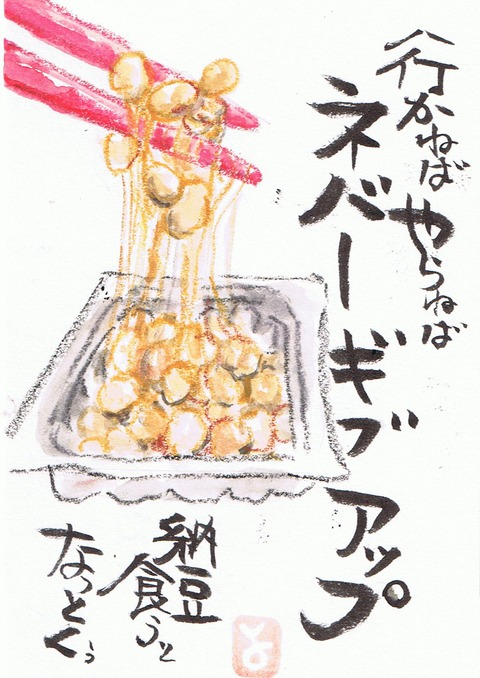 行かねば やらねば
ネバーギブアップ
納豆
食うと
なっとくぅ
と